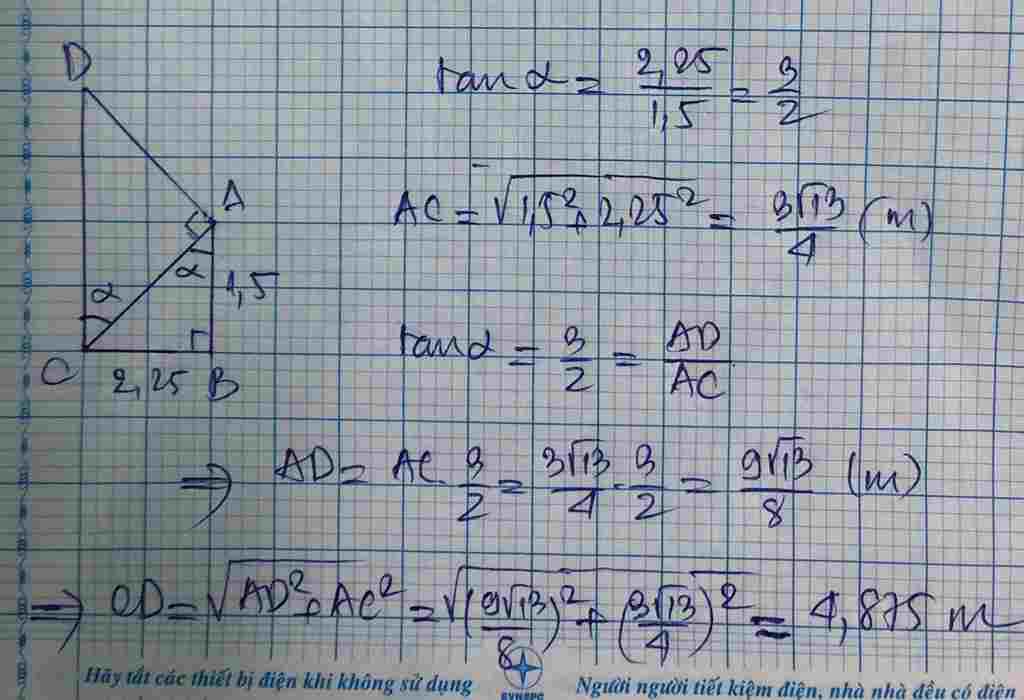 D
tan α = 2,25/1,5 = 3/2
A
AC = √(1,5² + 2,25²) = 3√13/4 (m)
α
α
1,5
C
2,25
B
tan α = 3/2 = AD/AC
⇒ AD = AC · 3/2 = 3√13/4 · 3/2 = 9√13/8 (m)
⇒ CD = √(AD² + AC²) = √((9√13/8)² + (3√13/4)²) = 4,875 m
Hãy tắt các thiết bị điện khi không sử dụng
EVNSPC
Người người tiết kiệm điện, nhà nhà đều có điện